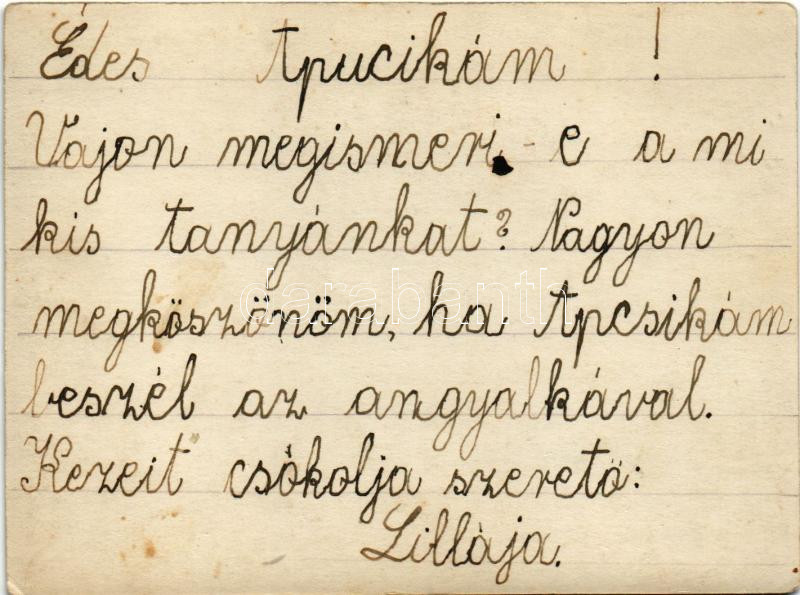 Édes Apucikám !
Vajon megismeri-e a mi
kis tanyánkat? Nagyon
megköszönöm, ha Apcsikám
beszél az angyalkával.
Kezeit csókolja szerető:
Lillája.
darabanth